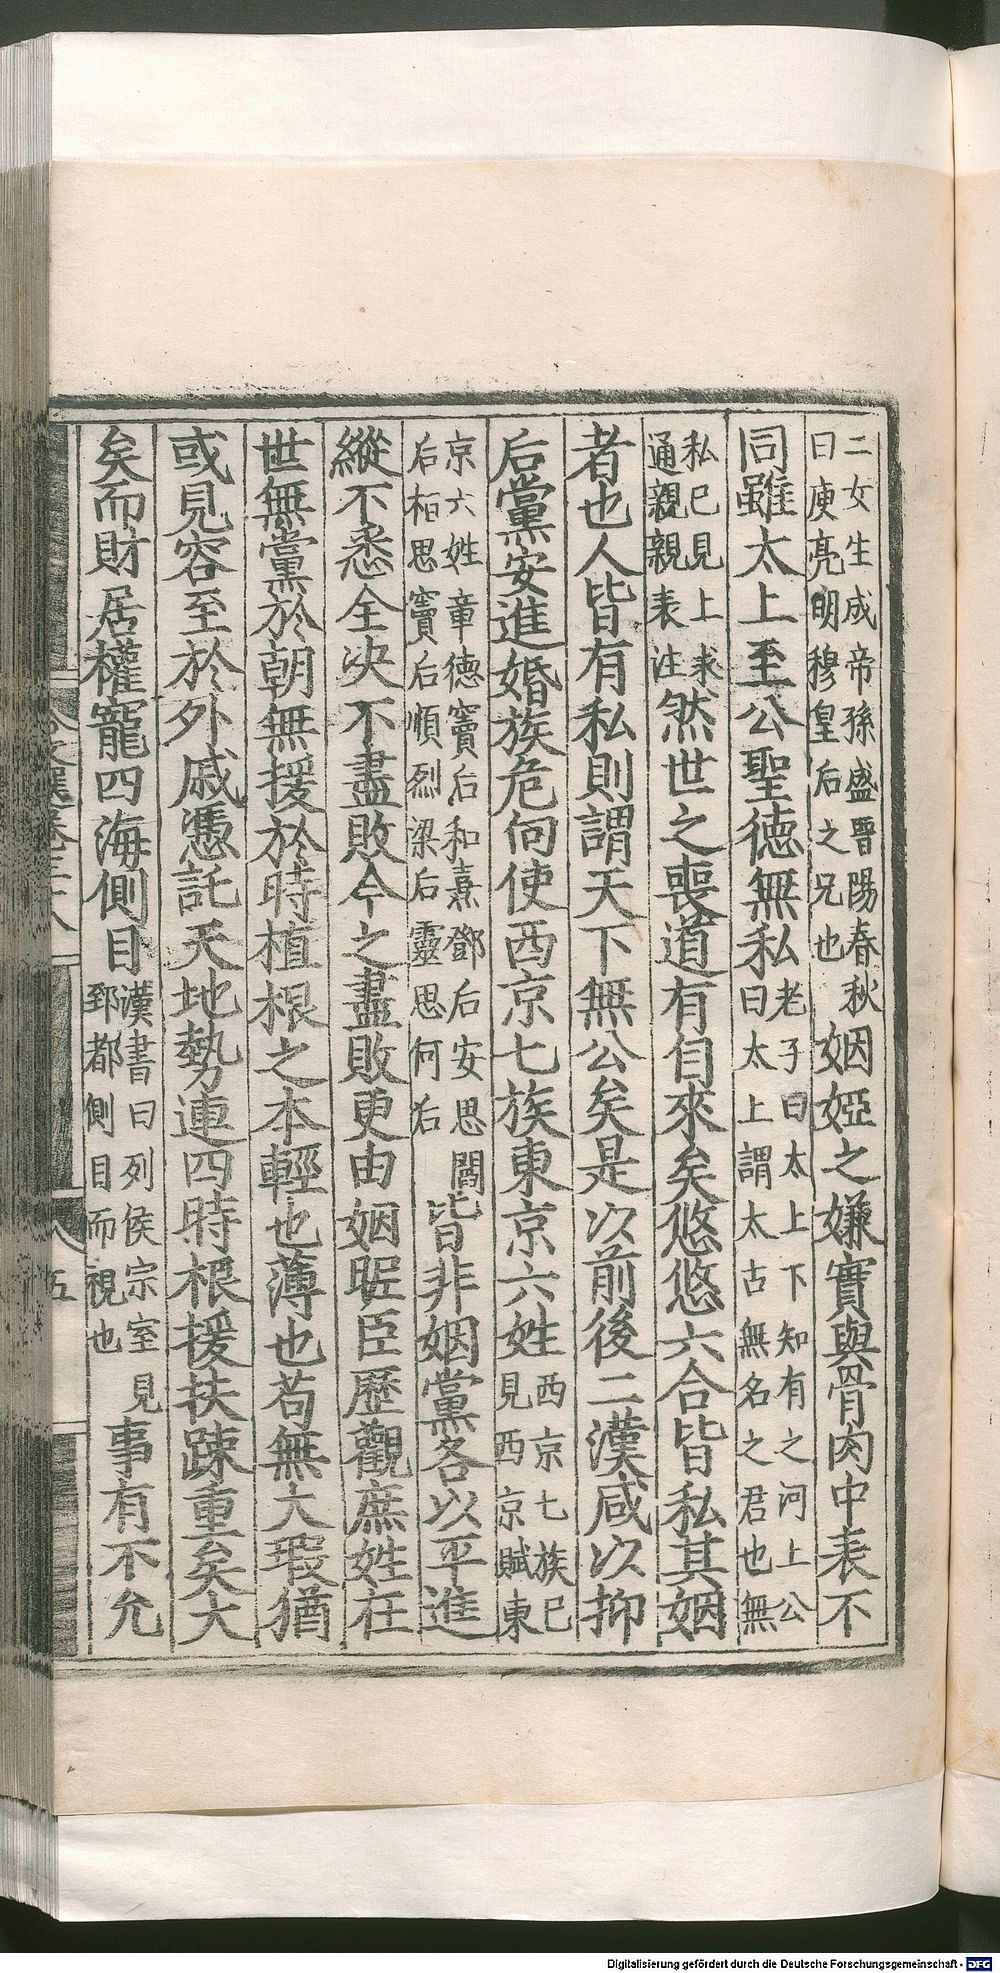 二女生成帝孫盛晉陽春秋曰庾亮明穆皇后之兄也姻婭之嫌實與骨肉中表不
同雖太上至公聖德無私老子曰太上下知有之河上公曰太上謂太古無名之君也無
私已見上求通親親表注然世之喪道有自來矣悠悠六合皆私其姻
者也人皆有私則謂天下無公矣是以前後二漢咸以抑
后黨安進婚族危向使西京七族東京六姓西京七族已見西京賦東
京六姓章德竇后和熹鄧后安思閻后桓思竇后順烈梁后靈思何后皆非姻黨各以平進
縱不悉全决不盡敗今之盡敗更由姻昵臣歷觀庶姓在
世無黨於朝無援於時植根之本輕也薄也苟無大瑕猶
或見容至於外戚憑託天地勢連四時根援扶踈重矣大
矣而財居權寵四海側目漢書曰列侯宗室見郅都側目而視也事有不允
五
Digitalisierung gefördert durch die Deutsche Forschungsgemeinschaft - DFG